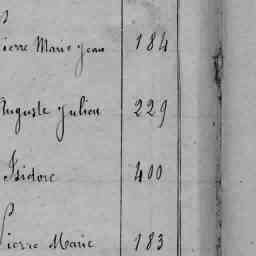 Pierre Marie Jean 184
Auguste Julien 229
Isidore 400
Pierre Marie 183